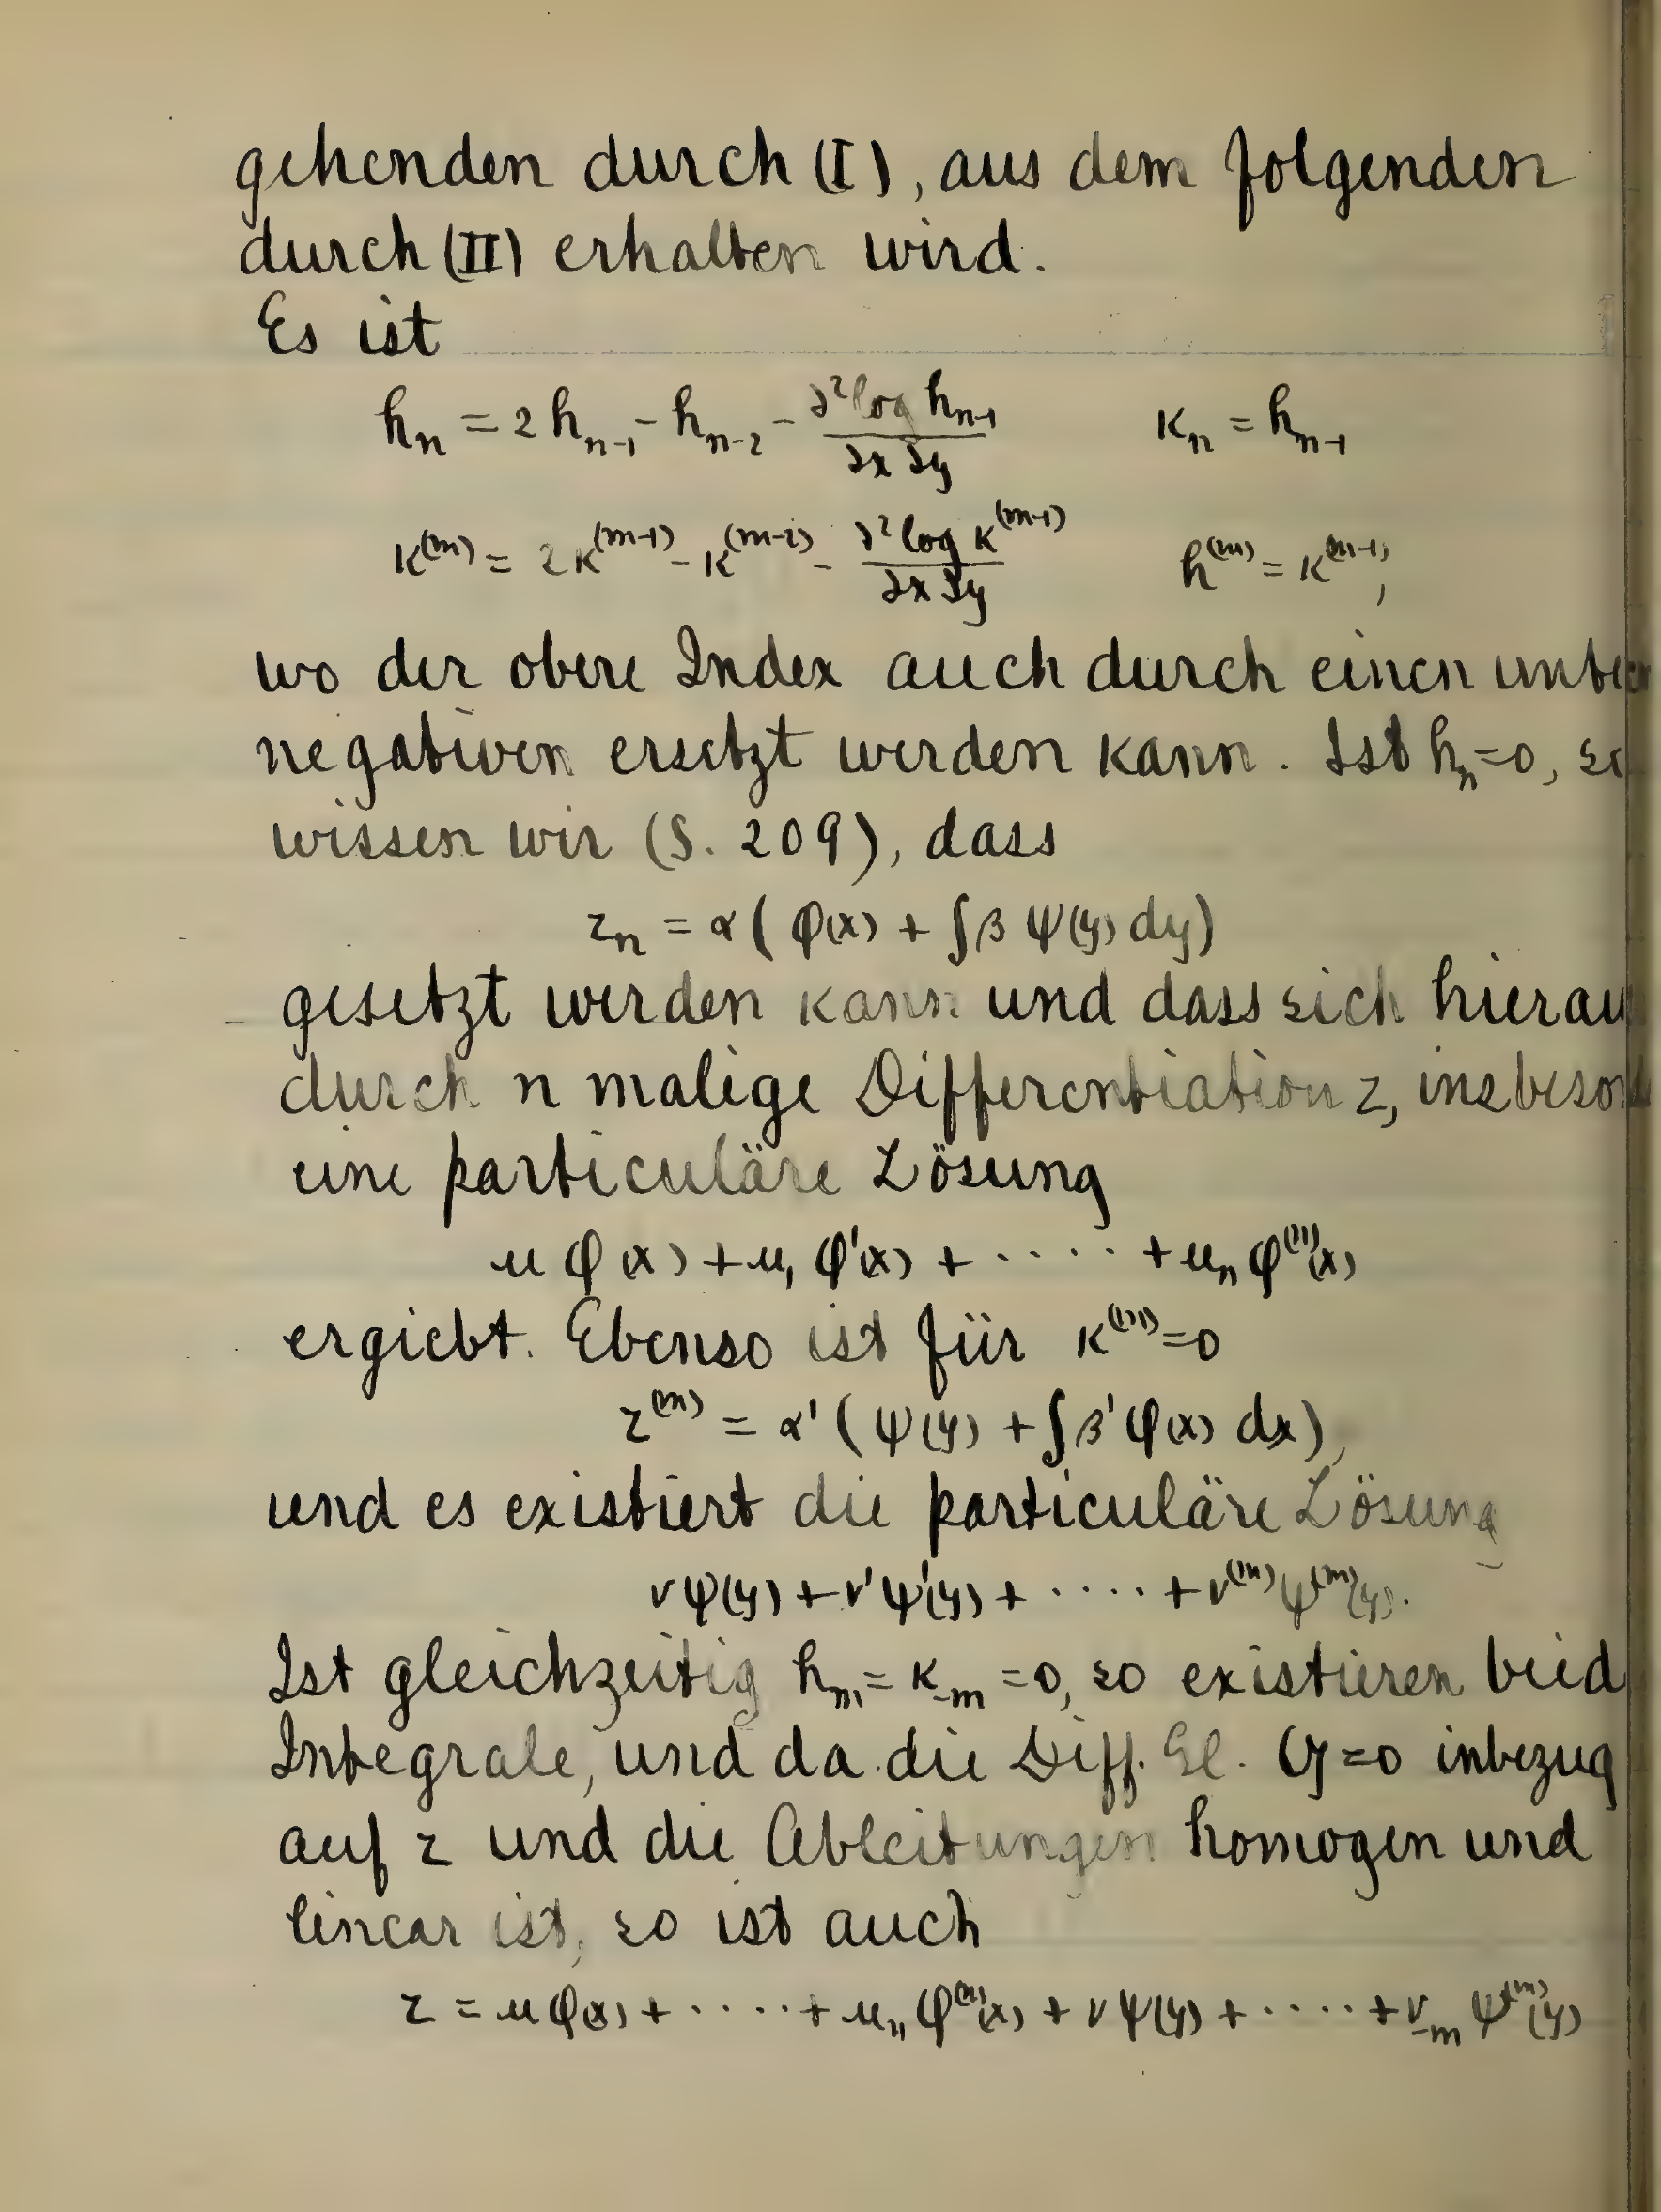 gehenden durch (I), aus dem folgenden
durch (II) erhalten wird.
Es ist
hₙ = 2hₙ₋₁ - hₙ₋₂ - ∂² log hₙ₋₁ / ∂x ∂y    κₙ = hₙ₋₁
κ^(m) = 2κ^(m-1) - κ^(m-2) - ∂² log κ^(m-1) / ∂x ∂y    h^(m) = κ^(m-1),
wo der obere Index auch durch einen unter
negativen ersetzt werden kann. Ist hₙ=0, so
wissen wir (S. 209), dass
zₙ = α( φ(x) + ∫β ψ(y) dy)
gesetzt werden kann und dass sich hierau
durch n malige Differentiation z, insbeson
eine particuläre Lösung
u φ(x) + u₁ φ'(x) + ····· + uₙ φ^(n)(x)
ergiebt. Ebenso ist für κ^(m)=0
z^(m) = α' ( ψ(y) + ∫β' φ(x) dx),
und es existiert die particuläre Lösung
v ψ(y) + v' ψ'(y) + ····· + v^(m) ψ^(m)(y).
Ist gleichzeitig hₙ = κ₋ₘ = 0, so existieren beid
Integrale, und da die Diff. Gl. =0 inbezug
auf z und die Ableitungen homogen und
linear ist, so ist auch
z = u φ(x) + ····· + uₙ φ^(n)(x) + v ψ(y) + ····· + v₋ₘ ψ^(m)(y)